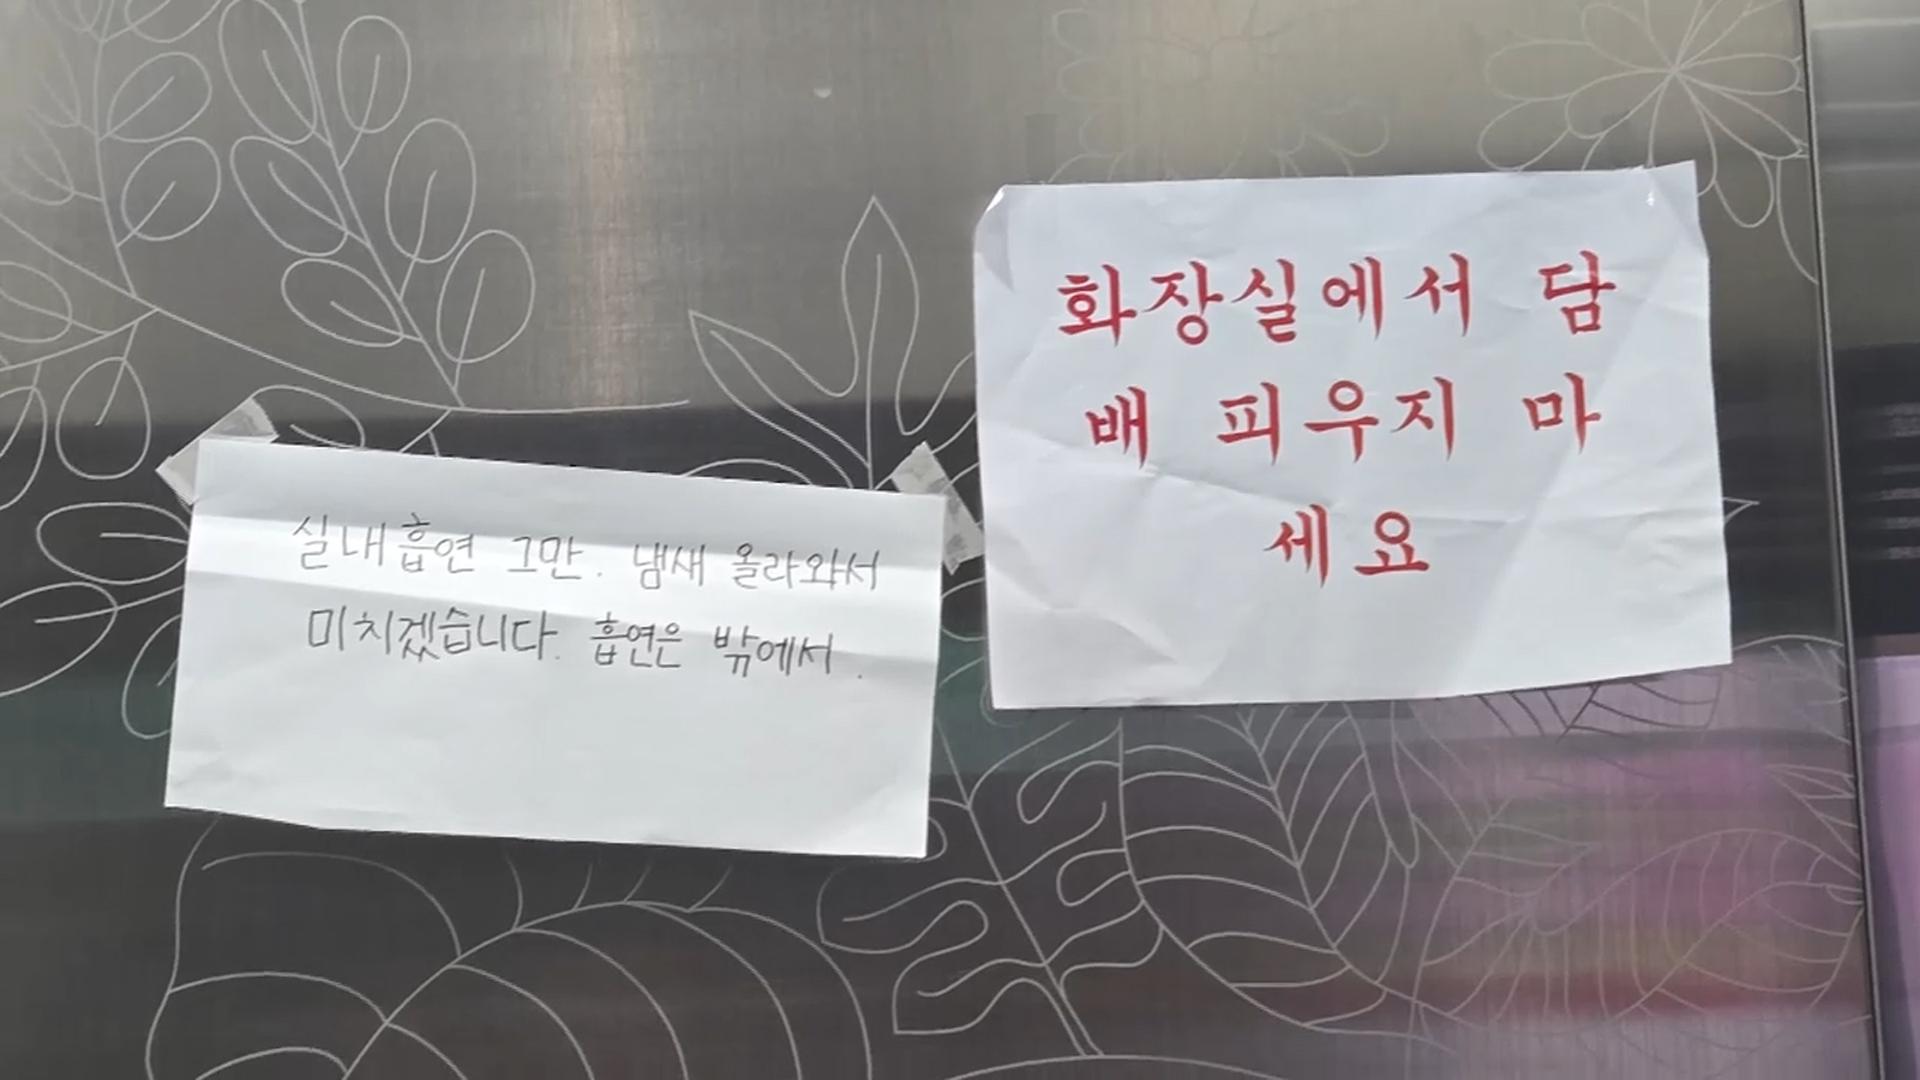 실내흡연 그만. 냄새 올라와서
미치겠습니다. 흡연은 밖에서.
화장실에서 담
배 피우지 마
세요